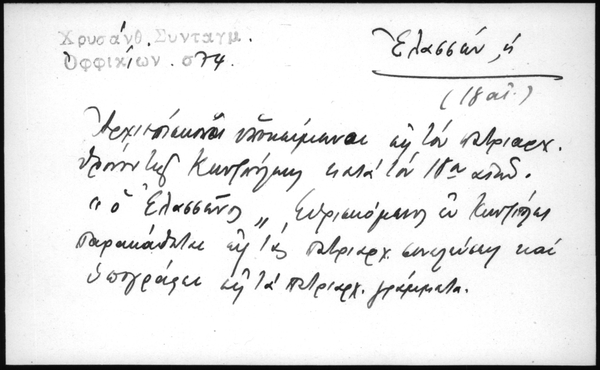 Χρυσάνθ. Συνταγμ.
Ὀφφικίων. σ 74.
Ἐλασσών, ἡ
(18 αἰ.)
Ἀρχιεπίσκοποι ὑποκείμενοι εἰς τὸν πατριαρχ.
θρόνον τῆς Κωνζπόλεως κατὰ τὸν 18ον αἰῶν.
"ὁ Ἐλασσῶνος" εὑρισκόμενος ἐν Κωνζπόλει
παρακάθεται εἰς τὰς πατριαρχ. συνελεύσεις καὶ
ὑπογράφει εἰς τὰ πατριαρχ. γράμματα.